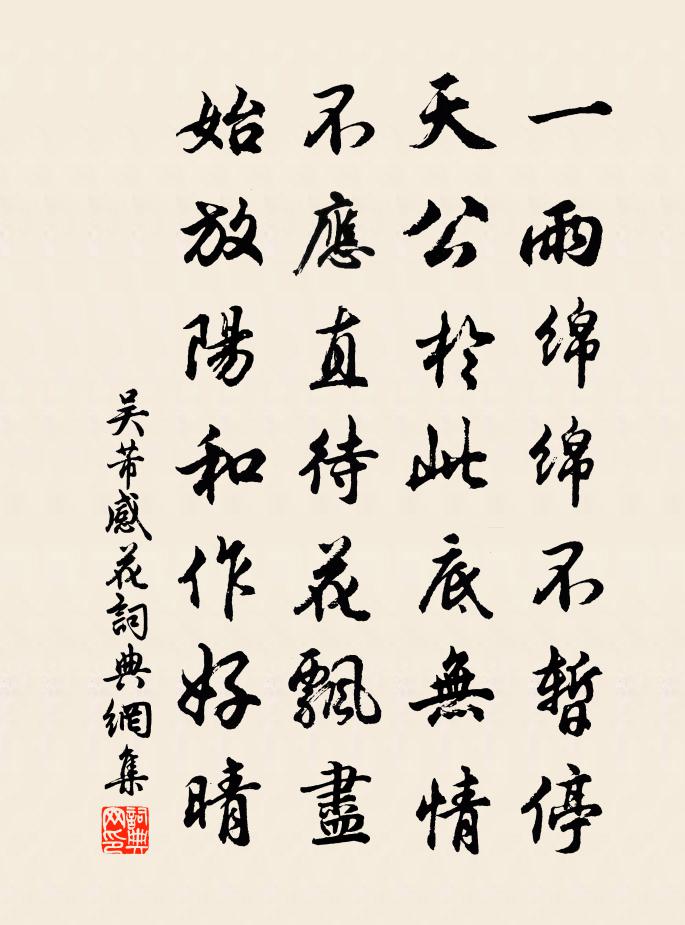 一雨綿綿不暫停
天公於此底無情
不應直待花飄盡
始放陽和作好晴
吴芾感花詞典網集
詞典網印